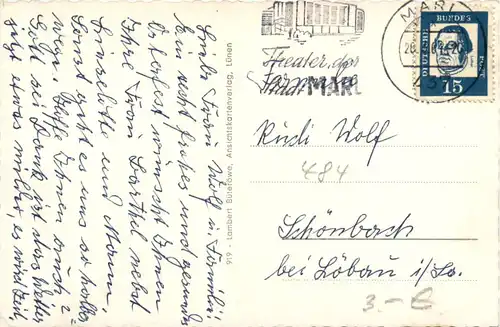 Liebe Frau Wolf u. Familie!
Ein recht frohes und gesundes
Osterfest wünscht Ihnen
Ihre Frau Barthel nebst
Lieselotte und Mann.
Sonst geht es uns so halbwegs
wegs. Hoffe Ihnen auch?
Gott sei Dank ist das Wetter
jetzt etwas milder, es wird Zeit,
919 - Lambert Büleföwa, Ansichtskartenverlag, Lünen
Theater der
Stadt MARL
MARL
DEUTSCHE BUNDESPOST
15
Rudi Wolf
484
Schönbach
bei Löbau i/Sa.
3.- €